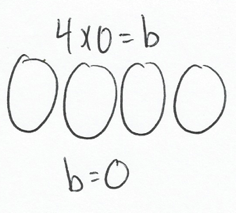 4x0=b
b=0